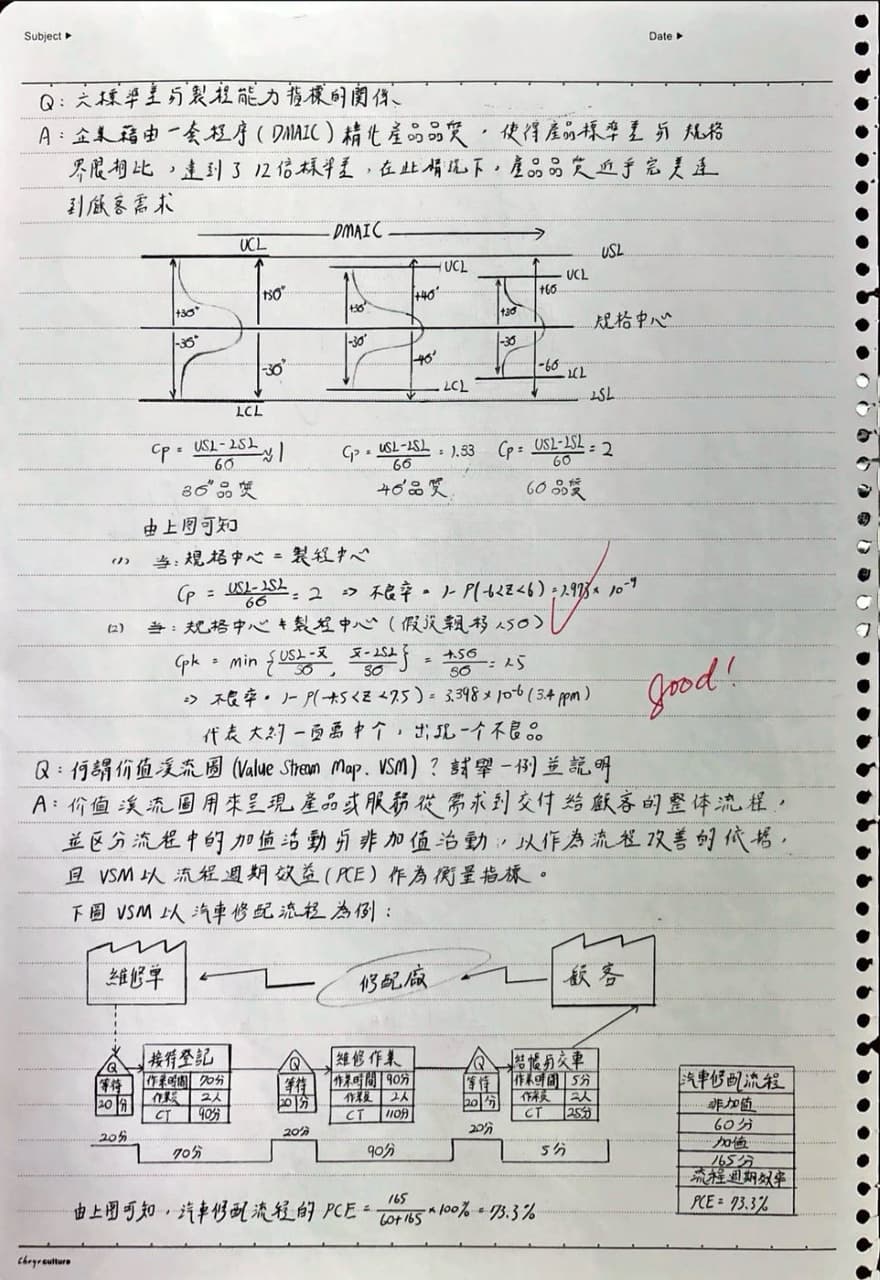 Subject ▶ Date ▶
Q：六標準差与製程能力指標的関係、
A：企業藉由一套程序(DMAIC)精化產品品質，使得產品標準差与規格
界限相比，達到了12倍標準差，在此情況下，產品品質近乎完美達
到顧客需求
DMAIC
UCL USL
UCL UCL
+3σ +3σ +3σ +4σ +3σ +6σ
規格中心
-3σ -3σ -3σ -4σ -3σ -6σ
LCL LCL LCL LSL
Cp = USL-LSL/6σ ≈ 1 Cp = USL-LSL/6σ = 1.33 Cp = USL-LSL/6σ = 2
3σ品質 4σ品質 6σ品質
由上图可知
(1) 当：規格中心 = 製程中心
Cp = USL-LSL/6σ = 2 => 不良率 = 1-P(-6<Z<6) = 1.973 × 10⁻⁹
(2) 当：規格中心 ≠ 製程中心 (假设飄移1.5σ)
Cpk = min {USL-x̄/3σ, x̄-LSL/3σ} = 4.5σ/3σ = 1.5
=> 不良率 = 1-P(-4.5<Z<7.5) = 3.398 × 10⁻⁶ (3.4 ppm)
good!
代表大約一百萬中个，出现一个不良品
Q：何謂价值溪流圖(Value Stream Map. VSM)？試舉一例並説明
A：价值溪流圖用來呈現產品或服務從需求到交付給顧客的整体流程，
並区分流程中的加值活動与非加值活動，以作為流程改善的依据，
且VSM以流程週期效益(PCE)作為衡量指標。
下圖VSM以汽車修配流程為例：
維修单 修配廠 顧客
Q 接待登記 Q 維修作業 Q 結帳与交車
等待 作業時間 70分 等待 作業時間 90分 等待 作業時間 5分
20分 作業員 2人 20分 作業員 2人 20分 作業員 2人
CT 90分 CT 110分 CT 25分
20分 70分 20分 90分 20分 5分
汽車修配流程
非加值
60分
加值
165分
流程週期效率
PCE = 73.3%
由上图可知，汽車修配流程的 PCE = 165/60+165 × 100% = 73.3%
culture